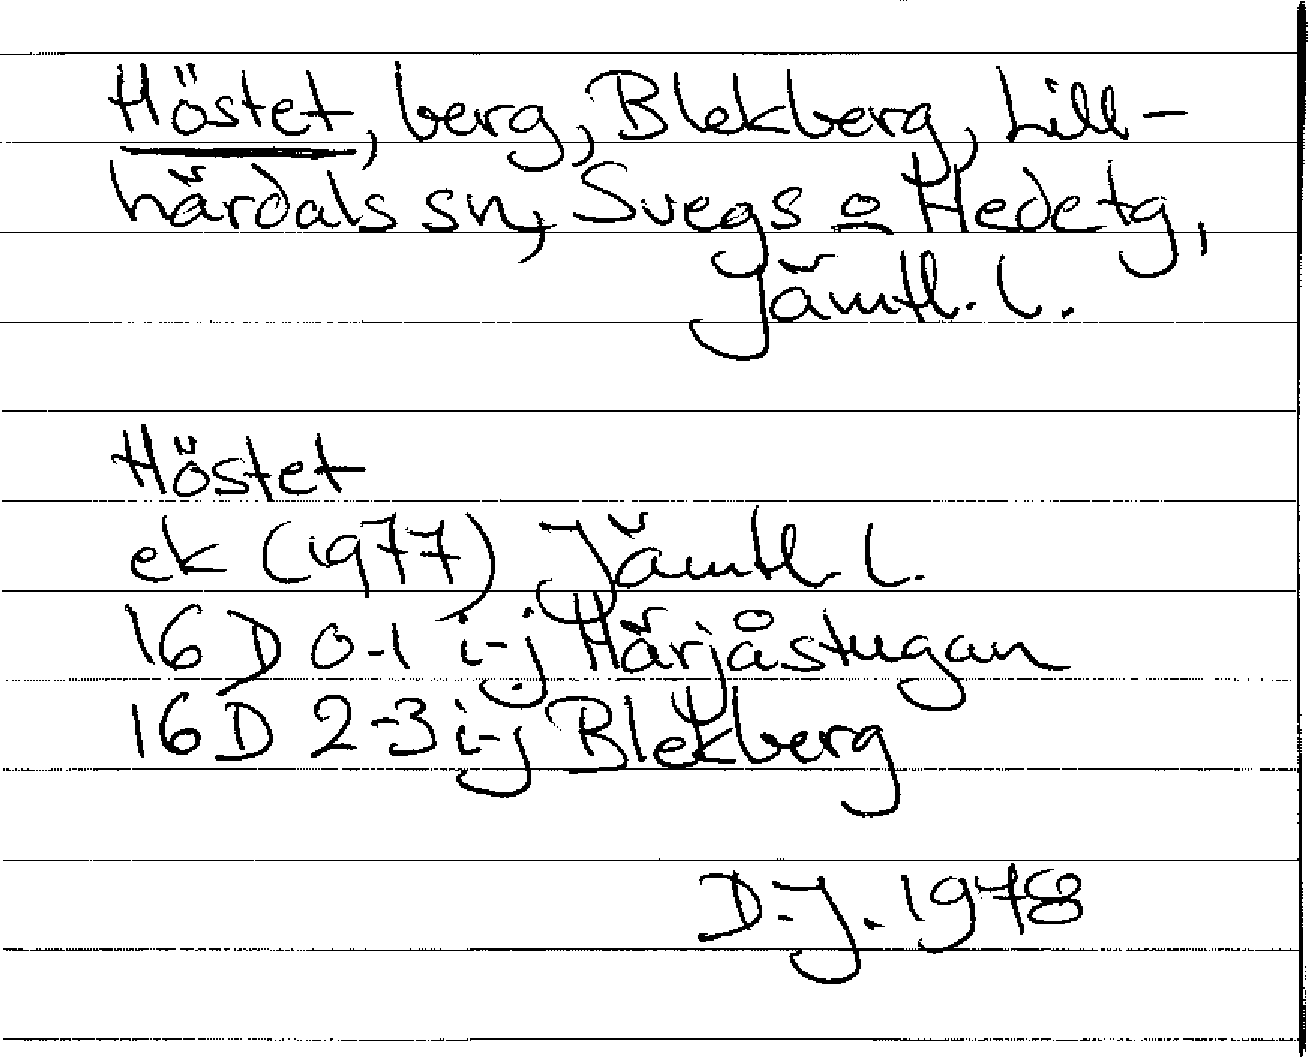 Höstet, berg, Blekberg, Lill-
härdals sn, Svegs o Hedetg,
Jämtl. l.
Höstet
ek (1977) Jämtl. l.
16 D 0-1 i-j Härjåstugan
16 D 2-3 i-j Blekberg
D.J. 1978